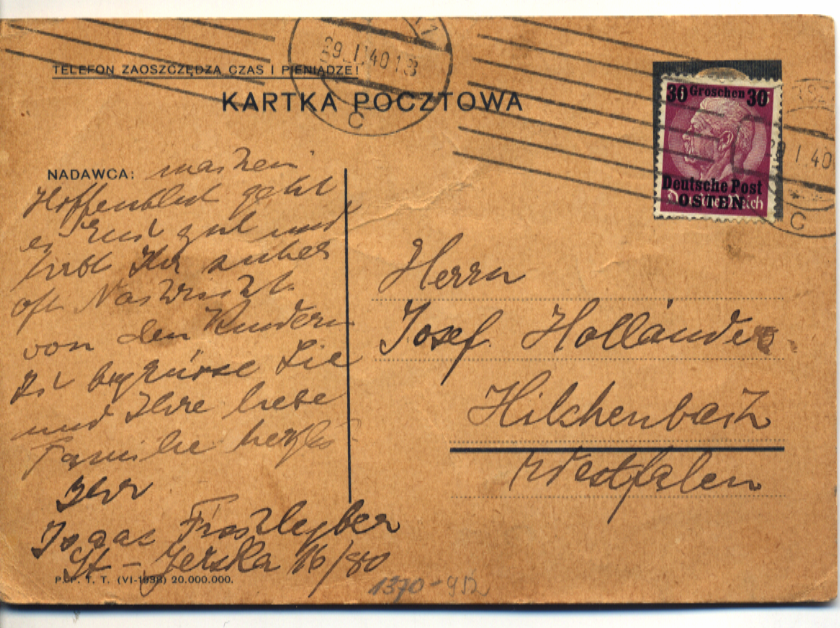 29.I.40 13
C
TELEFON ZAOSZCZĘDZA CZAS I PIENIĄDZE!
KARTKA POCZTOWA
30 Groschen 30
Deutsche Post
OSTEN
I 40
C
NADAWCA: machen
Hoffentlich geht
es gut und
habt Ihr sicher
oft Nachricht
von den Kindern
Ich begrüsse Sie
und Ihre liebe
Familie herzl.
Ihr
Isaac
16/80
P. P. T. T. (VI-1938) 20.000.000.
1370
Herrn
Josef Holländer
Hilchenbach
Westfalen